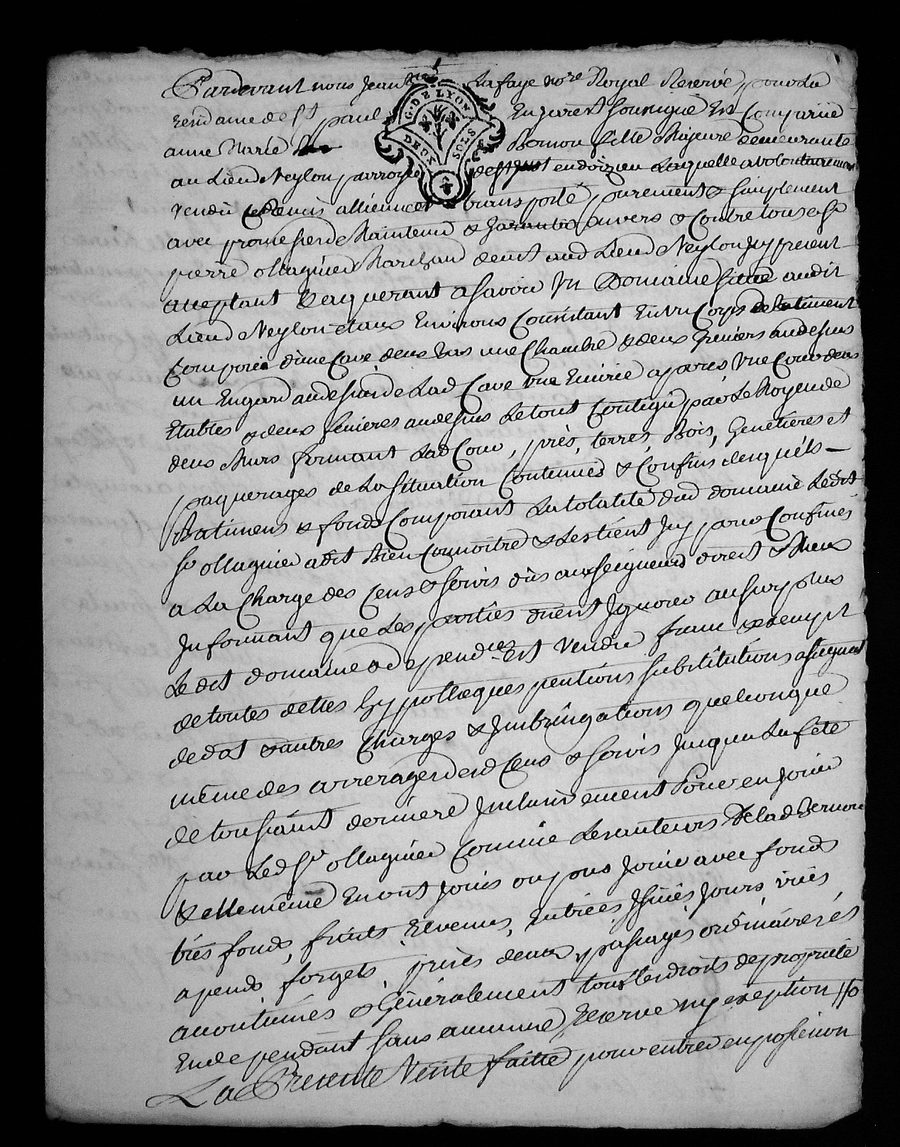 Pardevant nous Jean Bte Lafaye nore Royal Reservé pour la
Rendame de St paul En Jarest soussigné Est Comparüe
anne Marie Bornou fille Majeure demeurante
au Lieu Neylon parroisse de en doizieu Laquelle a volontairement
vendu cedé remis alliené et transporté purement & simplement
avec promesse de Maintenir & Garantir Envers & Contre tous a Sr
pierre ollagnier Marchand demt aud Lieu Neylon Jcy present
acceptant & acquerant a savoir Un Domaine situé audit
Lieu Neylon et aux Environs Consistant En Un Corps de batiment
Composé d'une Cave deux bas une Chambre & deux Greniers au dessus
un Engard au de Lad Cave une Ecuirie aparés Une Cour deux
Etables & deux fenieres au dessus Le tout Contigu par Le Moyen de
deux Murs formant Lad Cour, près, terres, Bois, Genetieres et
paquerages de La situation Contenues & Confins desquels
Batimens & fonds Composant La totalité dud domaine Ledit
Sr ollagnier a dit Bien Connoitre & Les tient Jcy pour Confinés
a La Charge des Cens & servis dûs aux seigneurs directs & Mieux
Jnformant que Les parties ont dit Jgnorer au surplus
Le dit domaine & dependces Est Vendu franc & exempt
de toutes dettes hypotheques pentions substitutions assignat
de dot & autres Charges & Jmbringations quelconque
même des arrerages desd Cens & servis Jusqu a La fete
de toussaint derniere Jnclusivement Pour en Jouir
par Led Sr ollagnier Comme Les auteurs de Lad Bornou
& elle même En ont Jouis ou pus Jouir avec fonds
trés fonds, fruits Revenus, Entrées Jssuës Jours vuës
apends forgets prises deaux passages ordinaires et
accoutumés & Généralement tous Les droits de proprieté
En dependant sans aucune Reserve ny exeption
La Presente Vente faitte pour entrer en possession
G. DE LYON
DEUX SOLS